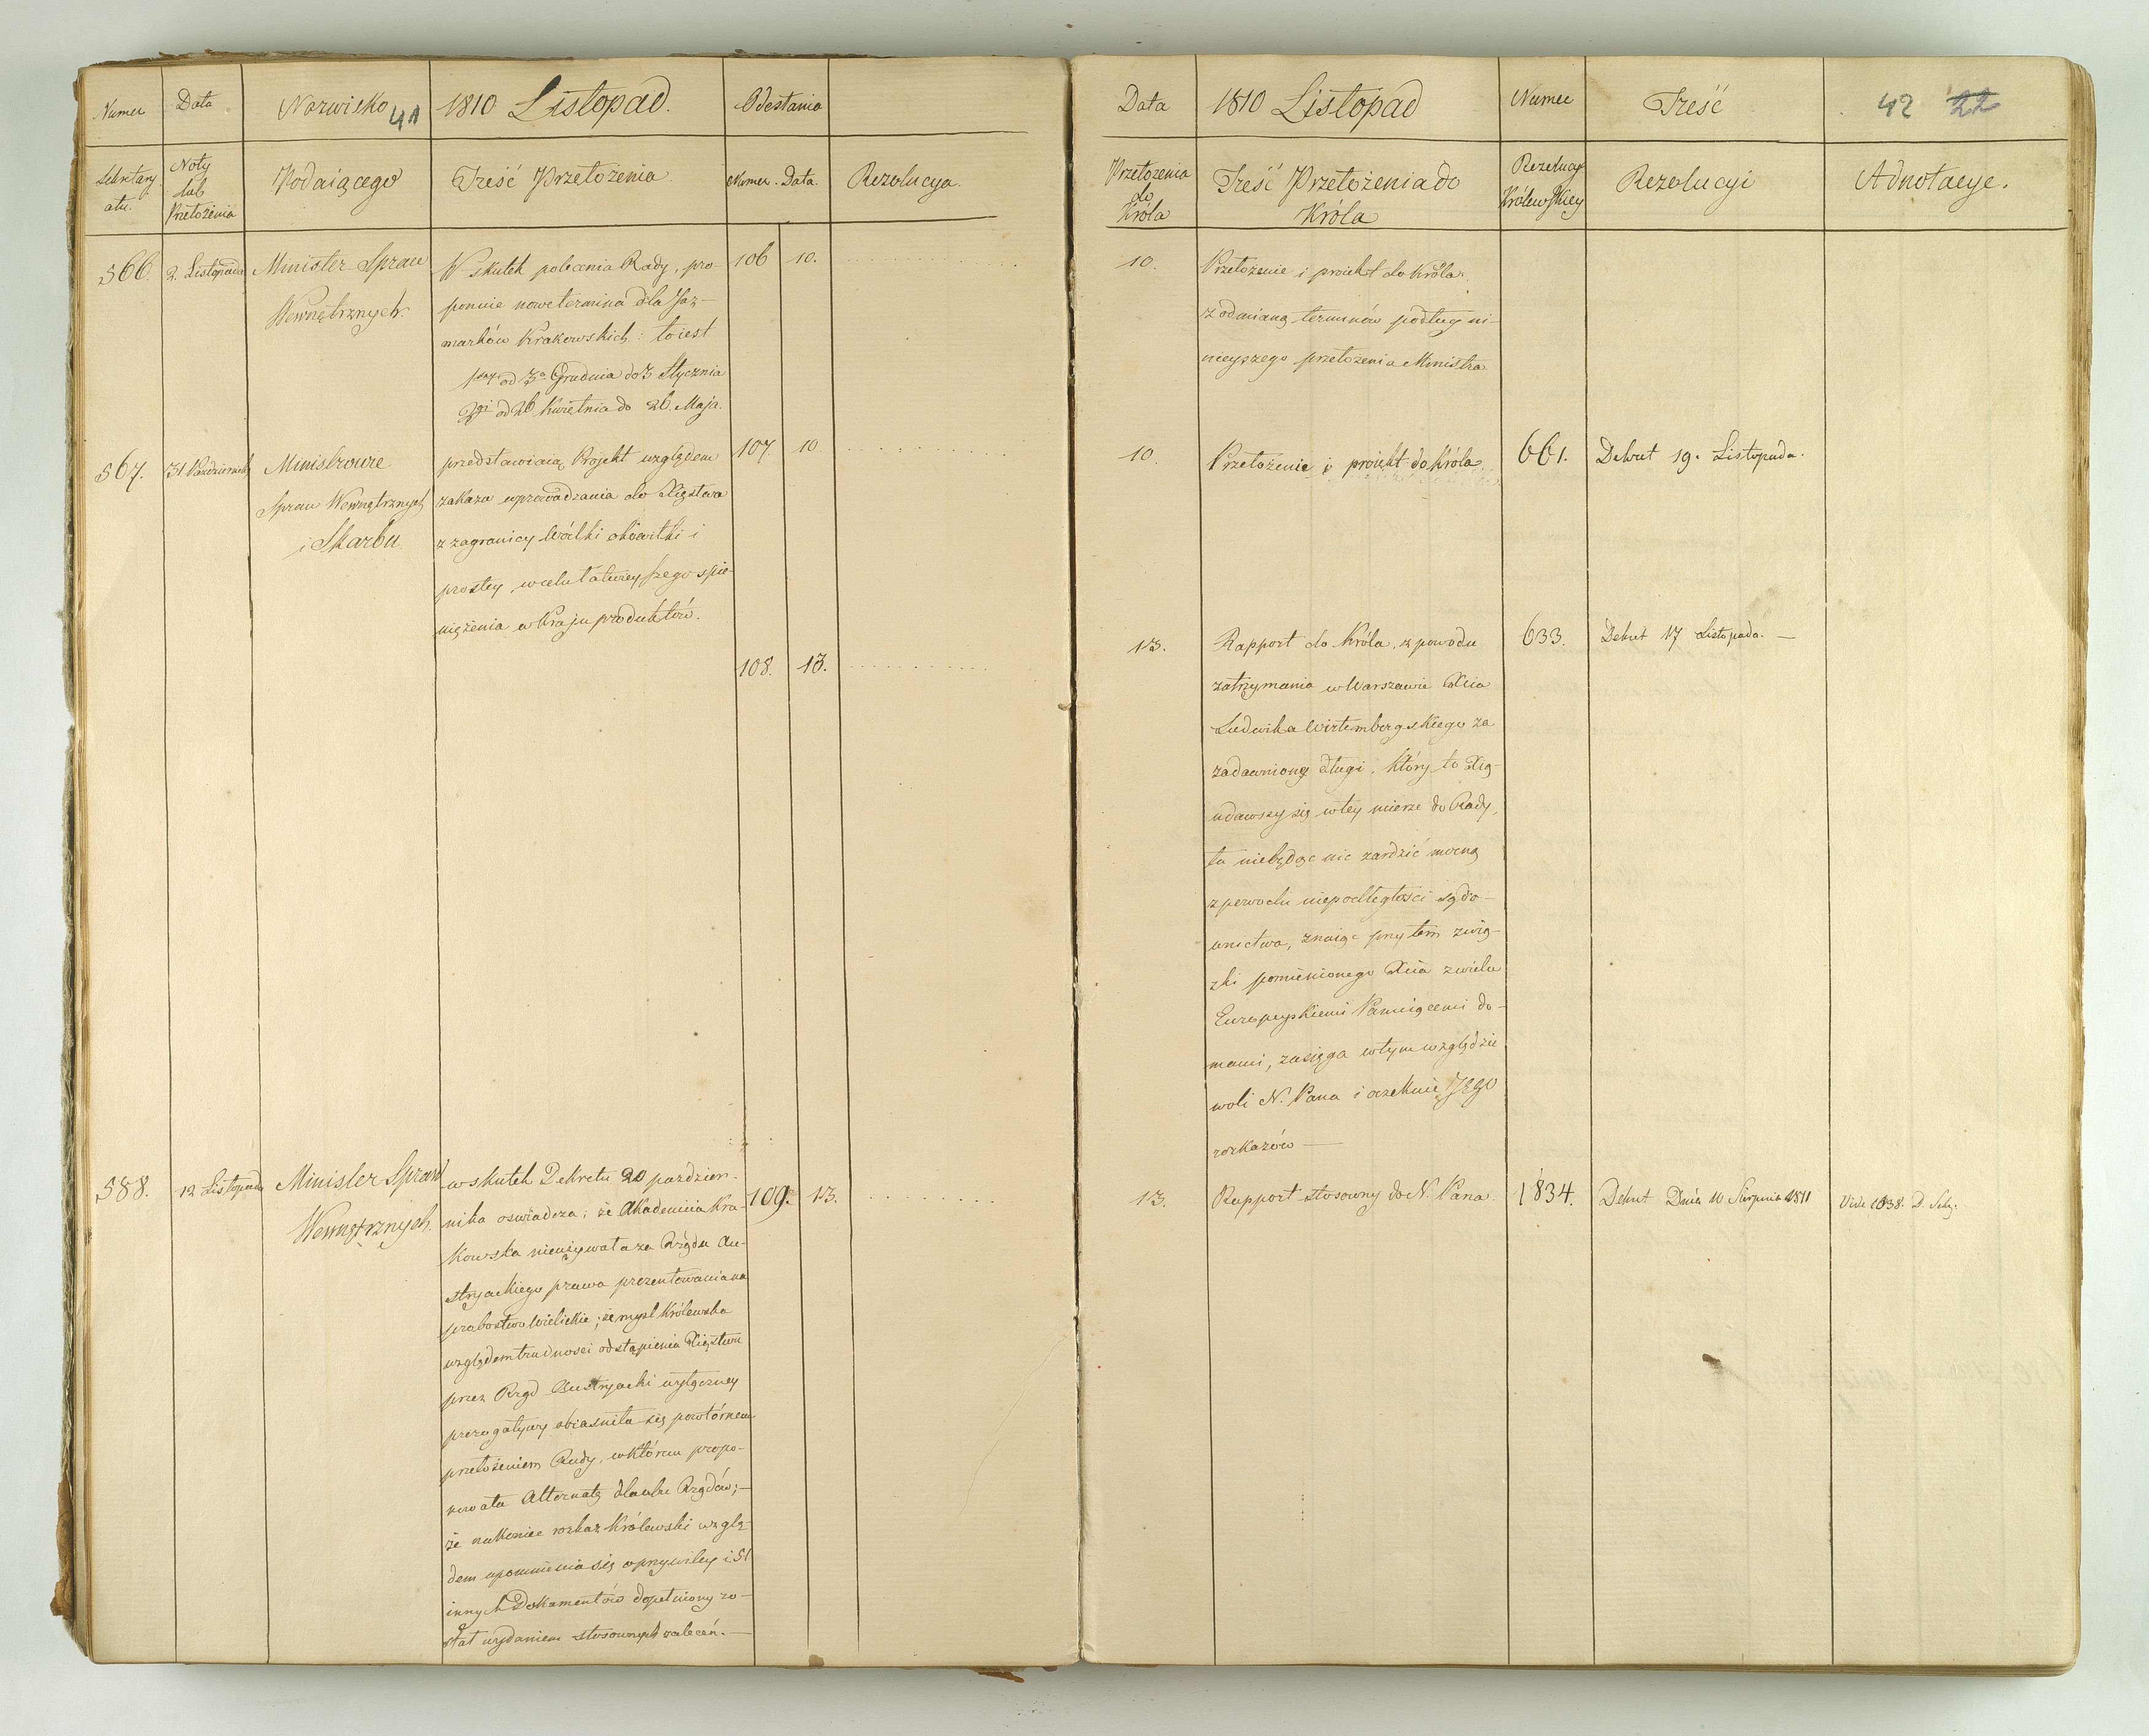 Numer Data Nazwisko 41 1810 Listopad. Odesłania
Sekretary- Noty Podaiącego Treść Przełożenia Numer. Data. Rezolucya.
atu. lub
Przełożenia
566. 2. Listopada Minister Spraw W skutek polecenia Rady, pro- 106 10.
Wewnętrznych. ponuie nowe termina dla Jar-
marków Krakowskich: to iest
1szy od 3a Grudnia do 3 Stycznia
2gi od 26 Kwietnia do 26 Maja.
567. 31 Październik Ministrowie przedstawiaią Projekt względem 107 10
Spraw Wewnętrznych zakazu wprowadzania do Xięstwa
i Skarbu z zagranicy Wódki okowitki i
prostey, w celu łatwieyszego spie-
niężenia w Kraju produktów.
108. 13.
588. 12 Listopada Minister Spraw w skutek Dekretu 20 październ- 109. 13.
Wewnętrznych. nika oswiadcza; że Akademiia Kra-
kowska nieużywała za Rządu Au-
stryackiego prawa prezentowania na
probostwo Wielickie; że mysl Królewska
względem trudnosci odstąpienia Xięstwu
przez Rząd Austryacki wyłączney
prerogatywy obiasniła się powtórnem
przełożeniem Rady, w którem propo-
nowała Alternatę dla obu Rządów;—
że nakoniec rozkaz Królewski wzglę-
dem upomnienia się o przywiley i 51
innych Dokumentów dopełniony zo-
stał wydaniem stosownych zaleceń.—
Data 1810 Listopad Numer Treść 42 22
Przełożenia Treść Przełożenia do Rezolucyi Rezolucyi Adnotacye.
do Króla Królewskiey
Króla
10. Przełożenie i proiekt do Króla
z odmianą terminów podług ni-
nieyszego przełożenia Ministra
10. Przełożenie i proiekt do Króla 661. Dekret 19. Listopada.
13. Rapport do Króla, z powodu 633. Dekret 17 Listopada. —
zatrzymania w Warszawie Xcia
Ludwika Wirtembergskiego za
zadawnione długi, który to Xią-
udawszy się w tey mierze do Rady,
ta niebędąc nic zardzić mocną
z powodu niepodległosci sądo-
wnictwa, znaiąc przytem zwią-
zki pomienionego Xcia z wielu
Europeyskiemi Panuiącemi do-
mami, zasięga w tym względzie
woli N. Pana i oczekuie Jego
rozkazów —
13. Rapport stosowny do N. Pana. 1834. Dekret Dnia 10 Sierpnia 1811 Vide 1038. D. Sekr.